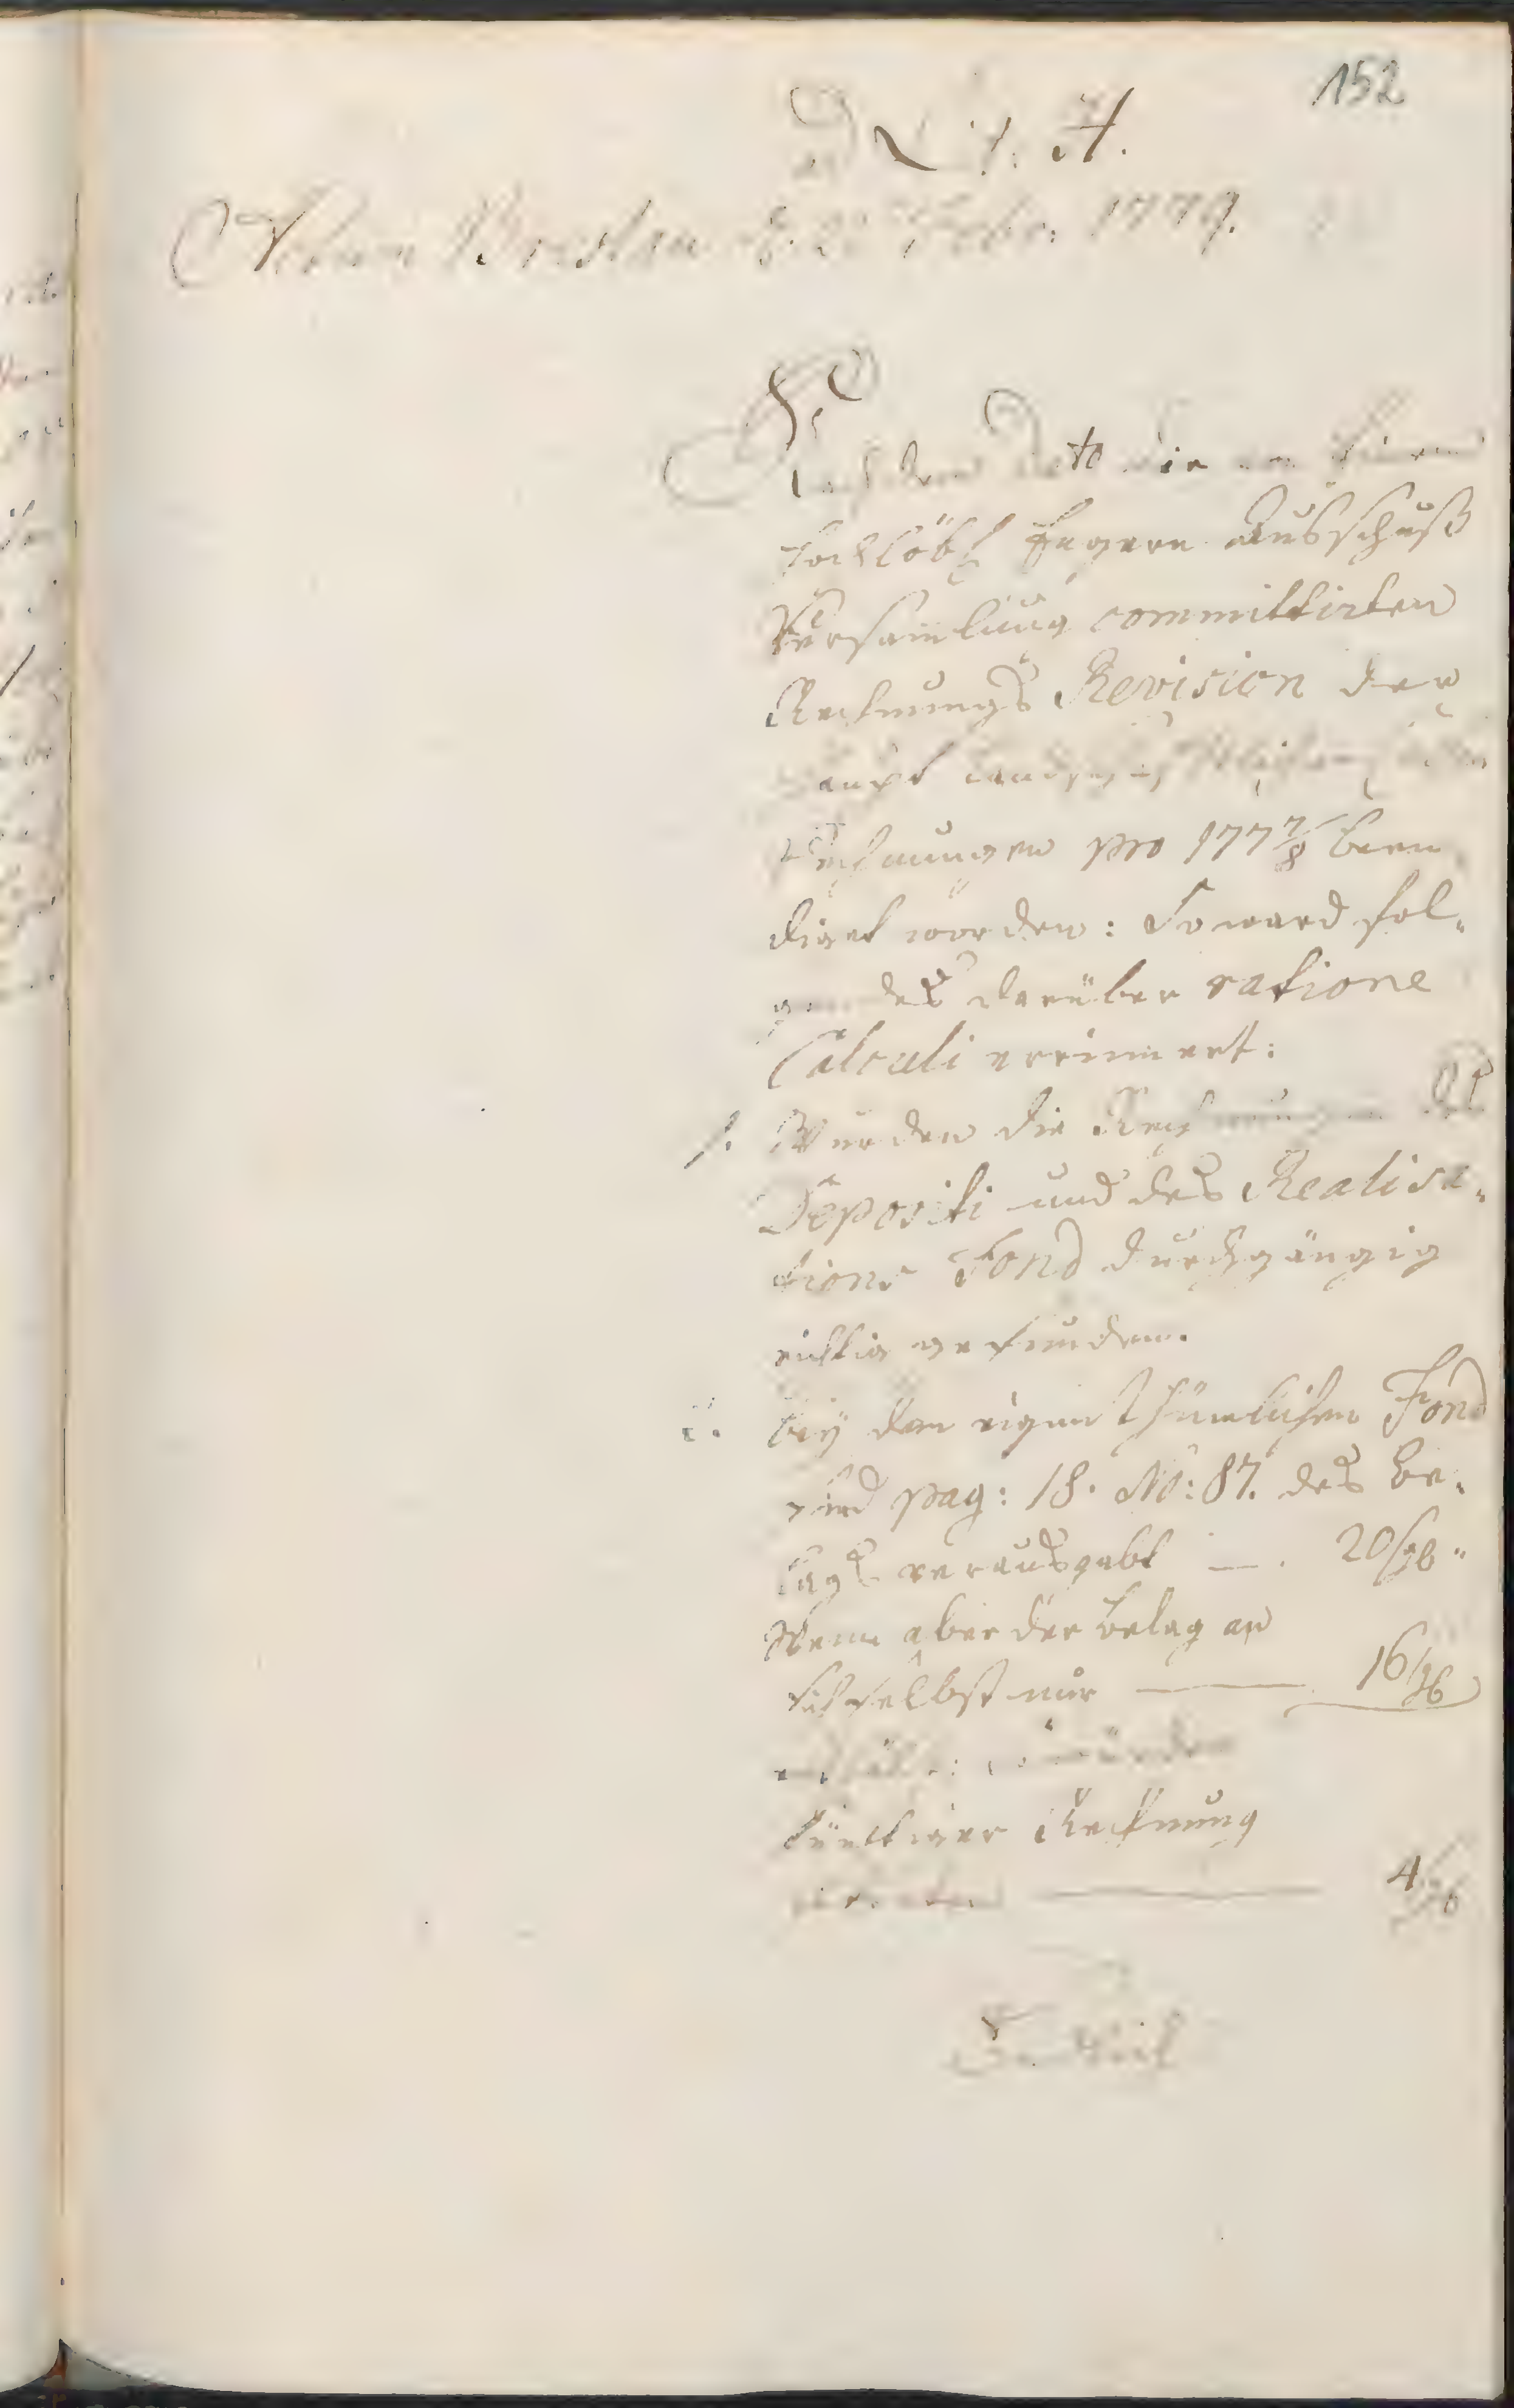 152
Actum Breslau d. Febr: 1779.
Nachdem Dato die von Einem
hochlöbl Engern Ausschuß
Versamlung committirten
Rechnungs Revision der
Haupt Landschaffts
Rechnungen pro 177 7/8 been
diget worden: So ward fol-
gendes darüber ratione
Calculi erinnert:
1. Wurden die Rechnungen des
Depositi und des Realisa-
tions Fond durchgängig
richtig gefunden.
2. bey dem eigenthümlichen Fond
sind pag: 18. No: 87. des Be-
lags verausgabt — 20
Wenn aber der Belag an
sich selbst nur — 16
enthält: so würden
künftiger Rechnung
— 4